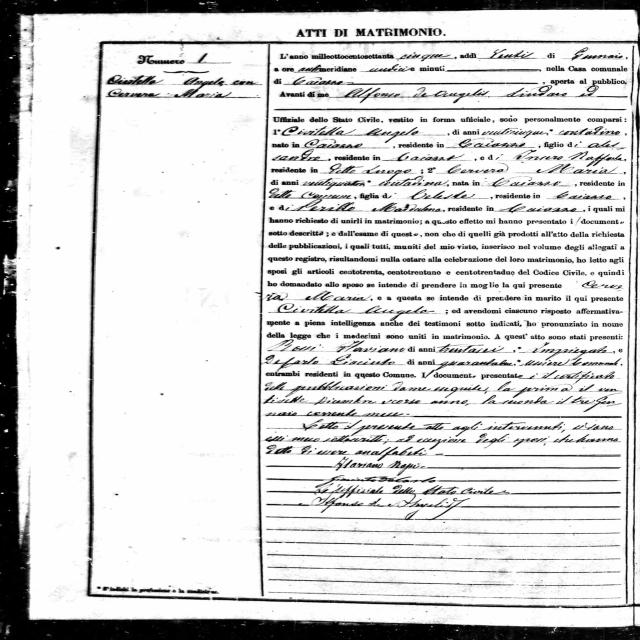 ATTI DI MATRIMONIO.
Numero 1
Civitella Angelo con
Cervera Maria
L'anno milleottocentosettanta cinque, addì venti di Gennaio,
a ore antimeridiane undici e minuti, nella Casa comunale
di Caiazzo, aperta al pubblico.
Avanti di me Alfonso de Angelis Sindaco ed
Uffiziale dello Stato Civile, vestito in forma ufficiale, sono personalmente comparsi:
1° Civitella Angelo, di anni venticinque, contadino,
nato in Caiazzo, residente in Caiazzo, figlio di Ales
sandro, residente in Caiazzo, e di Insero Raffaela
residente in detto Luogo; 2° Cervera Maria
di anni ventiquattro contadina, nata in Caiazzo, residente in
detto Comune, figlia di Celeste, residente in Caiazzo,
e di Perillo Maddalena, residente in Caiazzo, i quali mi
hanno richiesto di unirli in matrimonio; a questo effetto mi hanno presentato i document
sotto descritti; e dall'esame di quest, non che di quelli già prodotti all'atto della richiesta
delle pubblicazioni, i quali tutti, muniti del mio visto, inserisco nel volume degli allegati a
questo registro, risultandomi nulla ostare alla celebrazione del loro matrimonio, ho letto agli
sposi gli articoli centotrenta, centotrentuno e centotrentadue del Codice Civile, e quindi
ho domandato allo sposo se intende di prendere in moglie la qui presente Cerve
ra Maria, e a questa se intende di prendere in marito il qui presente
Civitella Angelo; ed avendomi ciascuno risposto affermativa-
mente a piena intelligenza anche dei testimoni sotto indicati, ho pronunziato in nome
della legge che i medesimi sono uniti in matrimonio. A quest'atto sono stati presenti:
Rossi Flaviano di anni trentasei, impiegato e
De Carlo Giacinto di anni quaranta, usciere Comunal.
entrambi residenti in questo Comune. I document presentat è il certificato
delle pubblicazioni da me eseguite, la prima il ven
tisette Dicembre scorso anno, la seconda il tre Gen
naio corrente mese.
Letto il presente atto agli intervenuti, si sono
essi meco sottoscritti, ad eccezione degli sposi, che hanno
detto di essere analfabeti.
Flaviano Rossi
Giacinto De Carlo
L'Uffiziale dello Stato Civile
Alfonso de Angelis
* S'indichi la professione o la condizione.